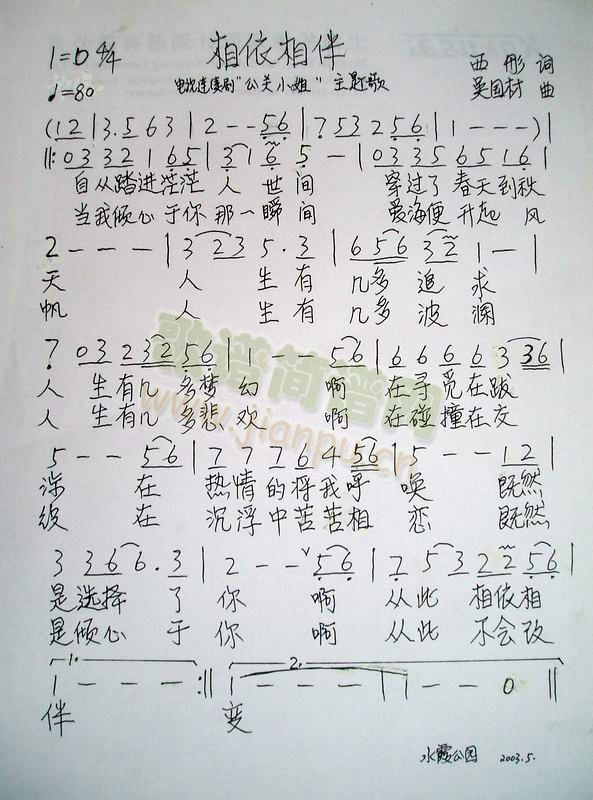 相依相伴
1=D 4/4
西彤 词
♩=80
电视连续剧"公关小姐"主题歌
吴国材 曲
(12|3.563|2--56|753256|1---)|
||:0332165|3165-|03356516|
自从踏进茫茫人世间 穿过了春天到秋
当我倾心于你那一瞬间 爱海便升起风
2---|3235.3|656321-|
天 人生有几多追求
帆 人生有几多波澜
70323256|1--56|6666336|
人生有几多梦幻 啊 在寻觅在跋
人生有几多悲欢 啊 在碰撞在交
5--56|7776456|5--12|
涉 在热情的将我呼唤 既然
织 在沉浮中苦苦相恋 既然
3366.3|2--56|7532256|
是选择了你 啊 从此相依相
是倾心于你 啊 从此不会改
1. 2.
1---:||1---|1--0||
伴 变
水霞公园 2003.5.
歌谱简谱网
www.jianpu.cn